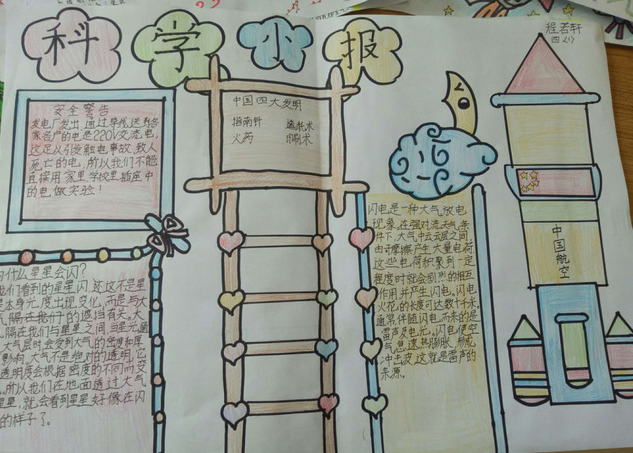 科学小报
程若轩
四(1)
安全警告
发电厂发出,通过导线送到各
家各户的电是220V交流电,
这足以引发触电事故,致人
死亡的电,所以我们不能
直接用家里,学校里插座中
的电做实验!
中国四大发明
指南针 造纸术
火药 印刷术
为什么星星会闪?
我们看到的星星闪烁,这不是星
星本身光度出现变化,而是与大
气隔在我们
隔在我们与星星之间,当星光通
过大气层时,会受到大气的密度和厚
度影响,大气不是绝对的透明,它
透明度会根据密度的不同而变
所以我们在地面透过大气
星星,就会看到星星好像在闪
的样子了。
闪电是一种大气放电
现象,在强对流天气条
件下,大气中云云层之间
由于摩擦产生大量电荷
这些电荷积聚到一定
程度时就会剧烈的相互
作用并产生闪电。闪电
火花的长度可达数千米,
通常伴随闪电而来的是
雷声及电光。闪电使空
气急速热膨胀,形成
冲击波,这就是雷声的
来源。
中国航空